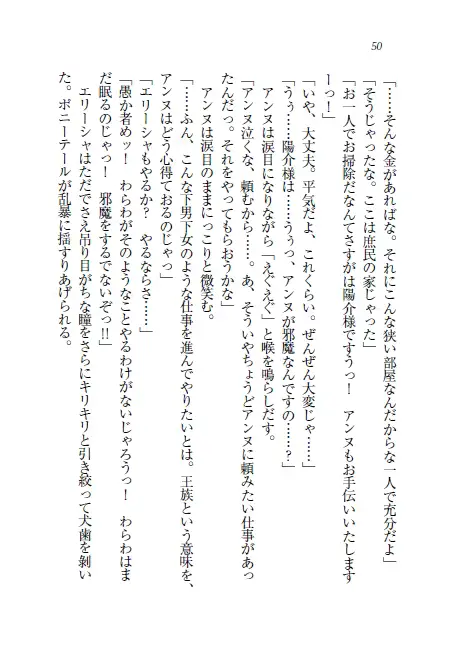 50
「……そんな金があればな。それにこんな狭い部屋なんだからな一人で充分だよ」
「そうじゃったな。ここは庶民の家じゃった」
「お一人でお掃除だなんてさすがは陽介様ですうっ！　アンヌもお手伝いいたします
ーっ！」
「いや、大丈夫。平気だよ、これくらい。ぜんぜん大変じゃ……」
「うぅ……陽介様は……うぅっ、アンヌが邪魔なんですの……？」
アンヌは涙目になりながら「えぐえぐ」と喉を鳴らしだす。
「アンヌ泣くな、頼むから……。あ、そういやちょうどアンヌに頼みたい仕事があっ
たんだっ。それをやってもらおうかな」
アンヌは涙目のままにっこりと微笑む。
「……ふん、こんな下男下女のような仕事を進んでやりたいとは。王族という意味を、
アンヌはどう心得ておるのじゃっ」
「エリーシャもやるか？　やるならさ……」
「愚か者めッ！　わらわがそのようなことやるわけがないじゃろうっ！　わらわはま
だ眠るのじゃっ！　邪魔をするでないぞっ!!」
エリーシャはただでさえ吊り目がちな瞳をさらにキリキリと引き絞って犬歯を剥い
た。ポニーテールが乱暴に揺すりあげられる。